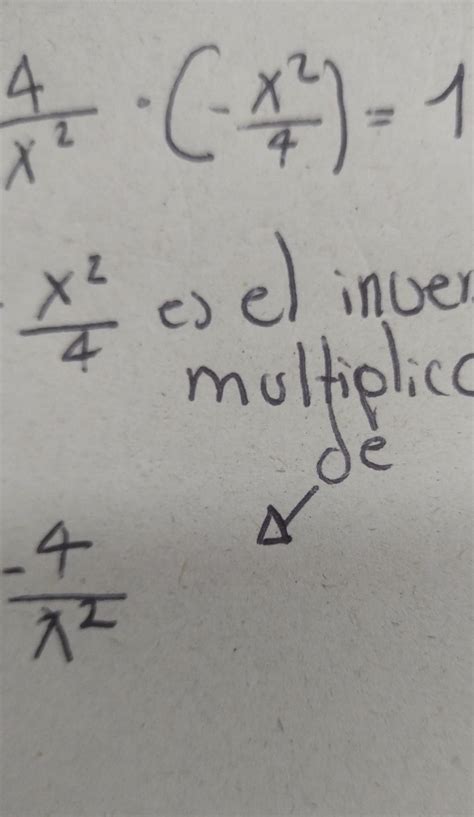 4/x² · (-x²/4) = 1
- x²/4 es el inver
multiplica
de
-4/x²